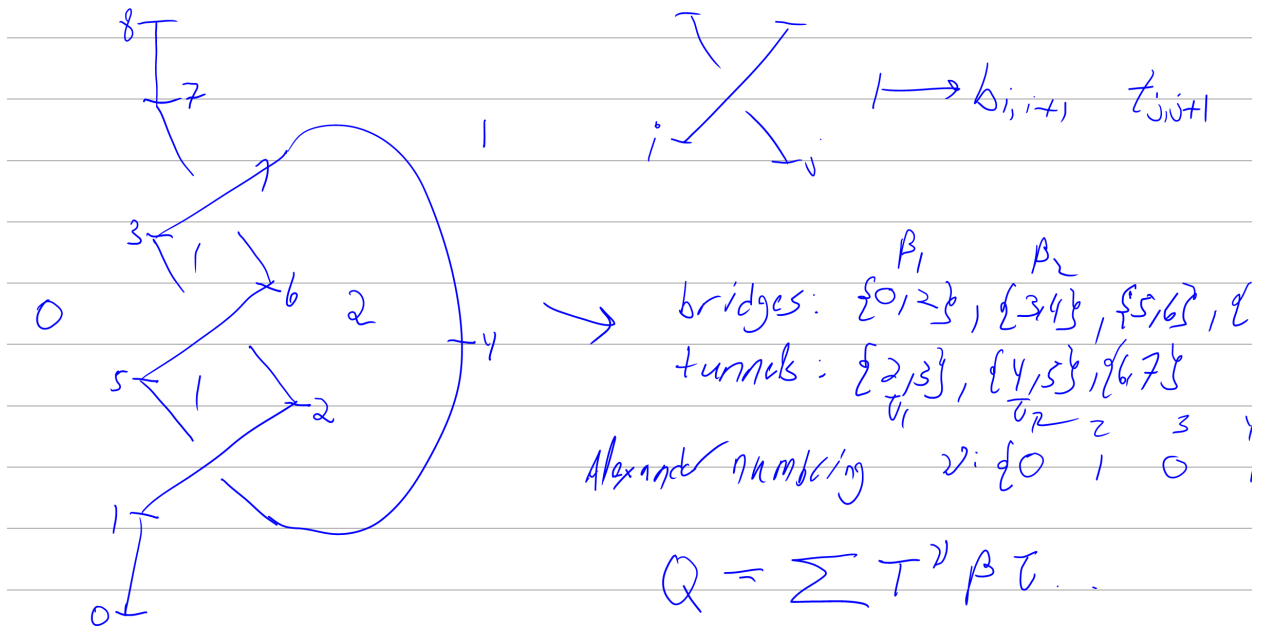 8
7
1
3
1
6
0
2
4
5
1
2
1
0
i
j
↦ b_{i,i+1} t_{j,j+1}
β₁ β₂
bridges: {0,2}, {3,4}, {5,6}, {
tunnels: {2,3}, {4,5}, {6,7}
τ₁ τ₂ 2 3 4
Alexander numbering ν: {0 1 0 1
Q = Σ T^ν β τ ...